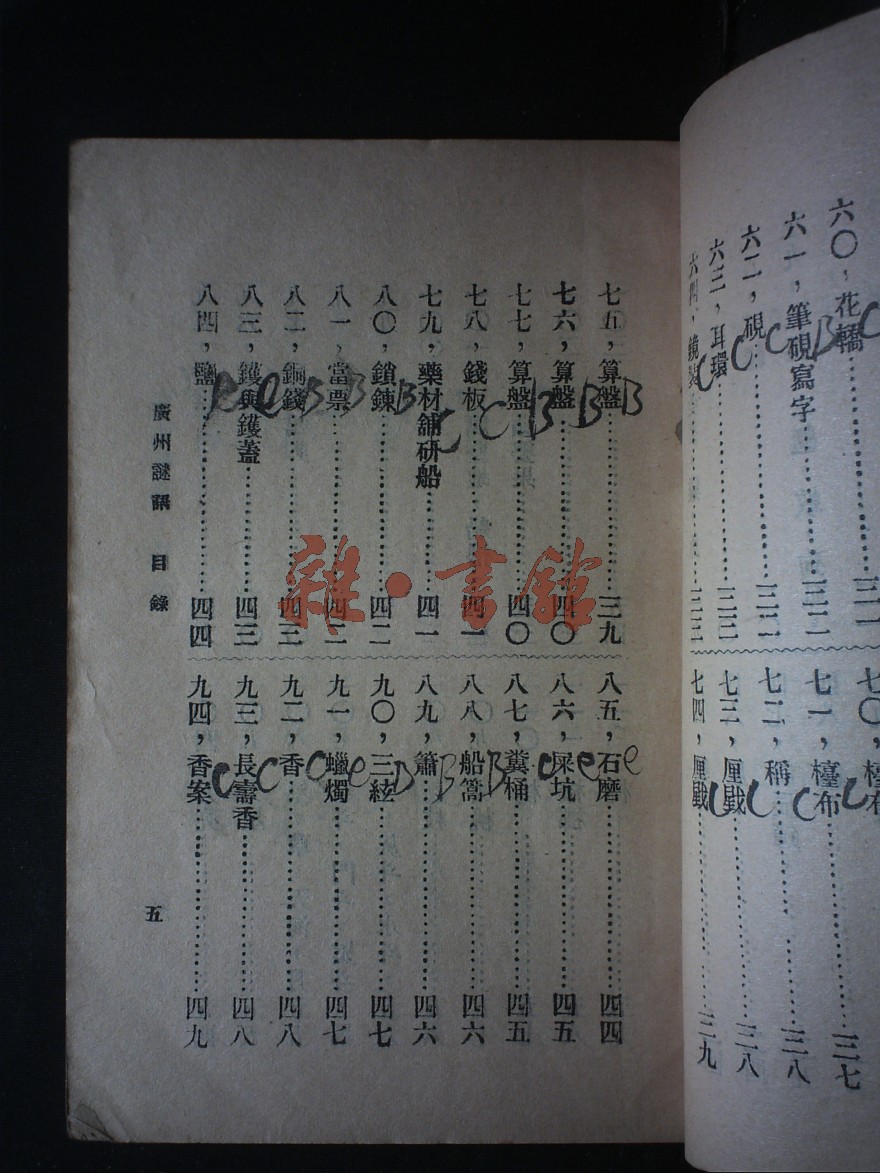 六〇，花轎……三一
六一，筆硯寫字……三二
六二，硯……三二
六三，耳環……三三
六四，鏡……三三
七〇，檯布……三七
七一，檯布……三八
七二，稱……三八
七三，厘戥……三八
七四，厘戥……三九
七五，算盤……三九
七六，算盤……四〇
七七，算盤……四〇
七八，錢板……四一
七九，藥材舖研船……四一
八〇，鎖鍊……四二
八一，當票……四二
八二，銅錢……四三
八三，鑊與鑊蓋……四三
八四，鹽……四四
八五，石磨……四四
八六，屎坑……四五
八七，糞桶……四五
八八，船篙……四六
八九，簫……四六
九〇，三絃……四七
九一，蠟燭……四七
九二，香……四八
九三，長壽香……四八
九四，香案……四九
廣州謎語 目錄
五
雜·書館
B
B
B
C
C
B
B
B
e
e
e
C
B
B
D
e
C
C
C
C
B
C
C
C
C
C
C
C